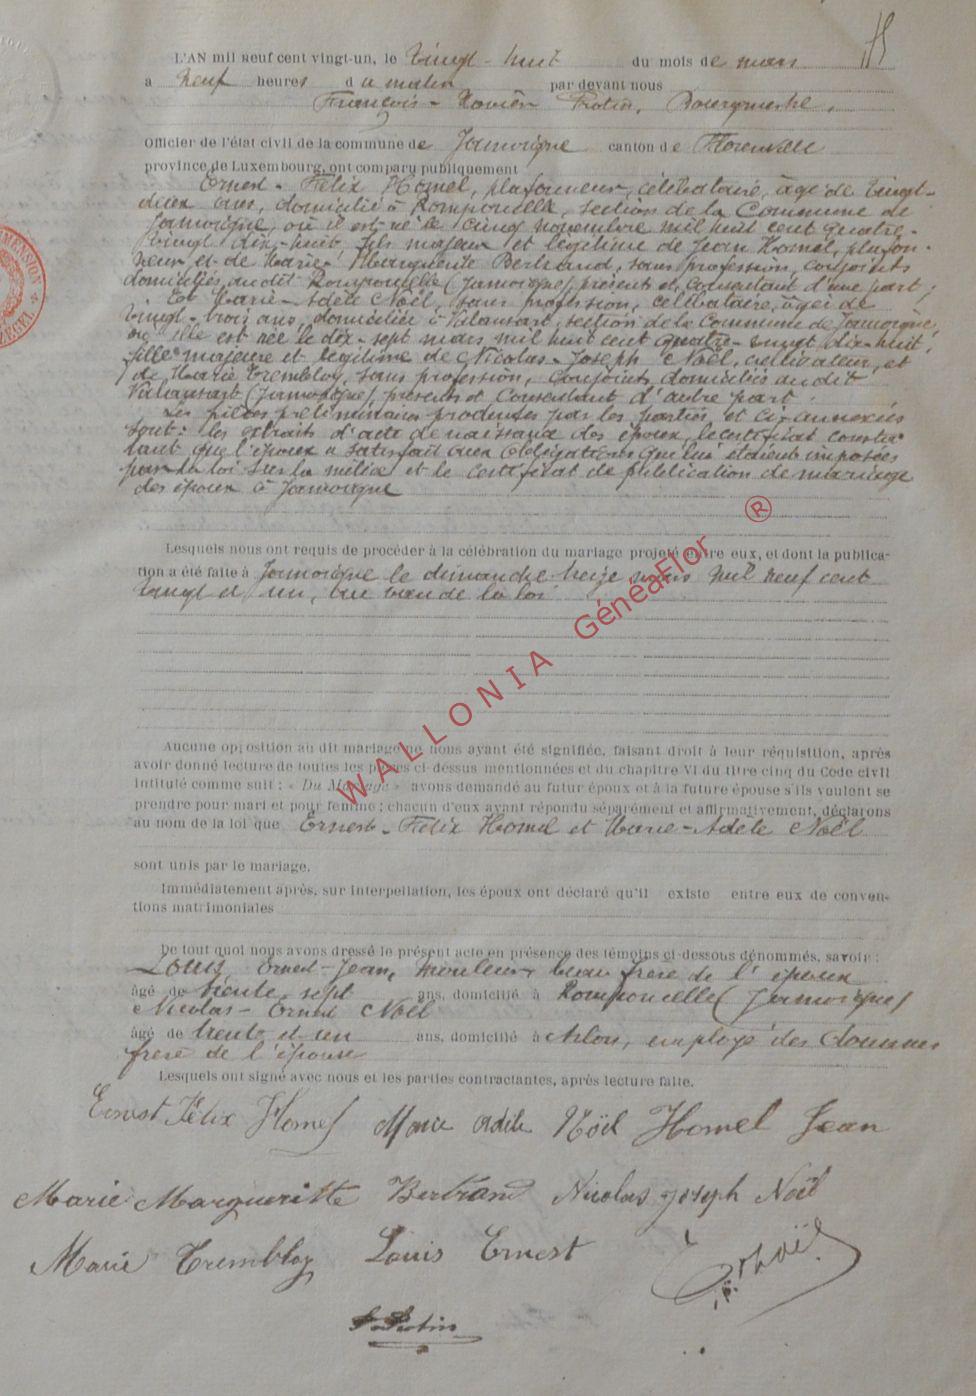 L'AN mil neuf cent vingt-un, le vingt-huit du mois de mars
a neuf heures du matin par devant nous
François-Xavier Protin, Bourgmestre,
Officier de l'état civil de la commune de Jamoigne canton de Florenville
province de Luxembourg, ont comparu publiquement
Ernest-Félix Homel, plafonneur, célibataire, âgé de vingt-
deux ans, domicilié à Romponcelle, section de la Commune de
Jamoigne, où il est né le cinq novembre mil huit cent quatre-
vingt dix-huit, fils majeur et légitime de Jean Homel, plafon-
neur et de Marie Marguerite Bertrand, sans profession, conjoints
domiciliés au dit Romponcelle (Jamoigne) présents et consentant d'une part;
Et Marie-Adèle Noël, sans profession, célibataire, âgée de
vingt-trois ans, domiciliée à Valansart, section de la Commune de Jamoigne,
où elle est née le dix-sept mars mil huit cent quatre-vingt dix-huit,
fille majeure et légitime de Nicolas-Joseph Noël, cultivateur, et
de Marie Trembloy, sans profession, conjoints domiciliés au dit
Valansart (Jamoigne) présents et consentant d'autre part.
Les pièces préliminaires produites par les parties et ci-annexées
sont: les extraits d'acte de naissance des époux, le certificat consta-
tant que l'époux a satisfait aux obligations que lui étaient imposées
par la loi sur la milice et le certificat de publication de mariage
des époux à Jamoigne
Lesquels nous ont requis de procéder à la célébration du mariage projeté entre eux, et dont la publica-
tion a été faite à Jamoigne le dimanche treize mars mil neuf cent
vingt et un, au vœu de la loi
Aucune opposition au dit mariage ne nous ayant été signifiée, faisant droit à leur réquisition, après
avoir donné lecture de toutes les pièces ci-dessus mentionnées et du chapitre VI du titre cinq du Code civil
intitulé comme suit : « Du Mariage » avons demandé au futur époux et à la future épouse s'ils veulent se
prendre pour mari et pour femme ; chacun d'eux ayant répondu séparément et affirmativement, déclarons
au nom de la loi que Ernest-Félix Homel et Marie-Adèle Noël
sont unis par le mariage.
Immédiatement après, sur interpellation, les époux ont déclaré qu'il existe entre eux de conven-
tions matrimoniales
De tout quoi nous avons dressé le présent acte en présence des témoins ci-dessous dénommés, savoir :
Louis, Ernest-Jean, mouleur, beau frère de l'époux
âgé de trente sept ans, domicilié à Romponcelle (Jamoigne)
Nicolas-Ernest Noël
âgé de trente et un ans, domicilié à Arlon, employé des douanes
frère de l'épouse
Lesquels ont signé avec nous et les parties contractantes, après lecture faite.
Ernest Félix Homel Marie Adèle Noël Homel Jean
Marie Margueritte Bertrand Nicolas Joseph Noël
Marie Trembloy Louis Ernest
WALLONIA GénéaFlor ®